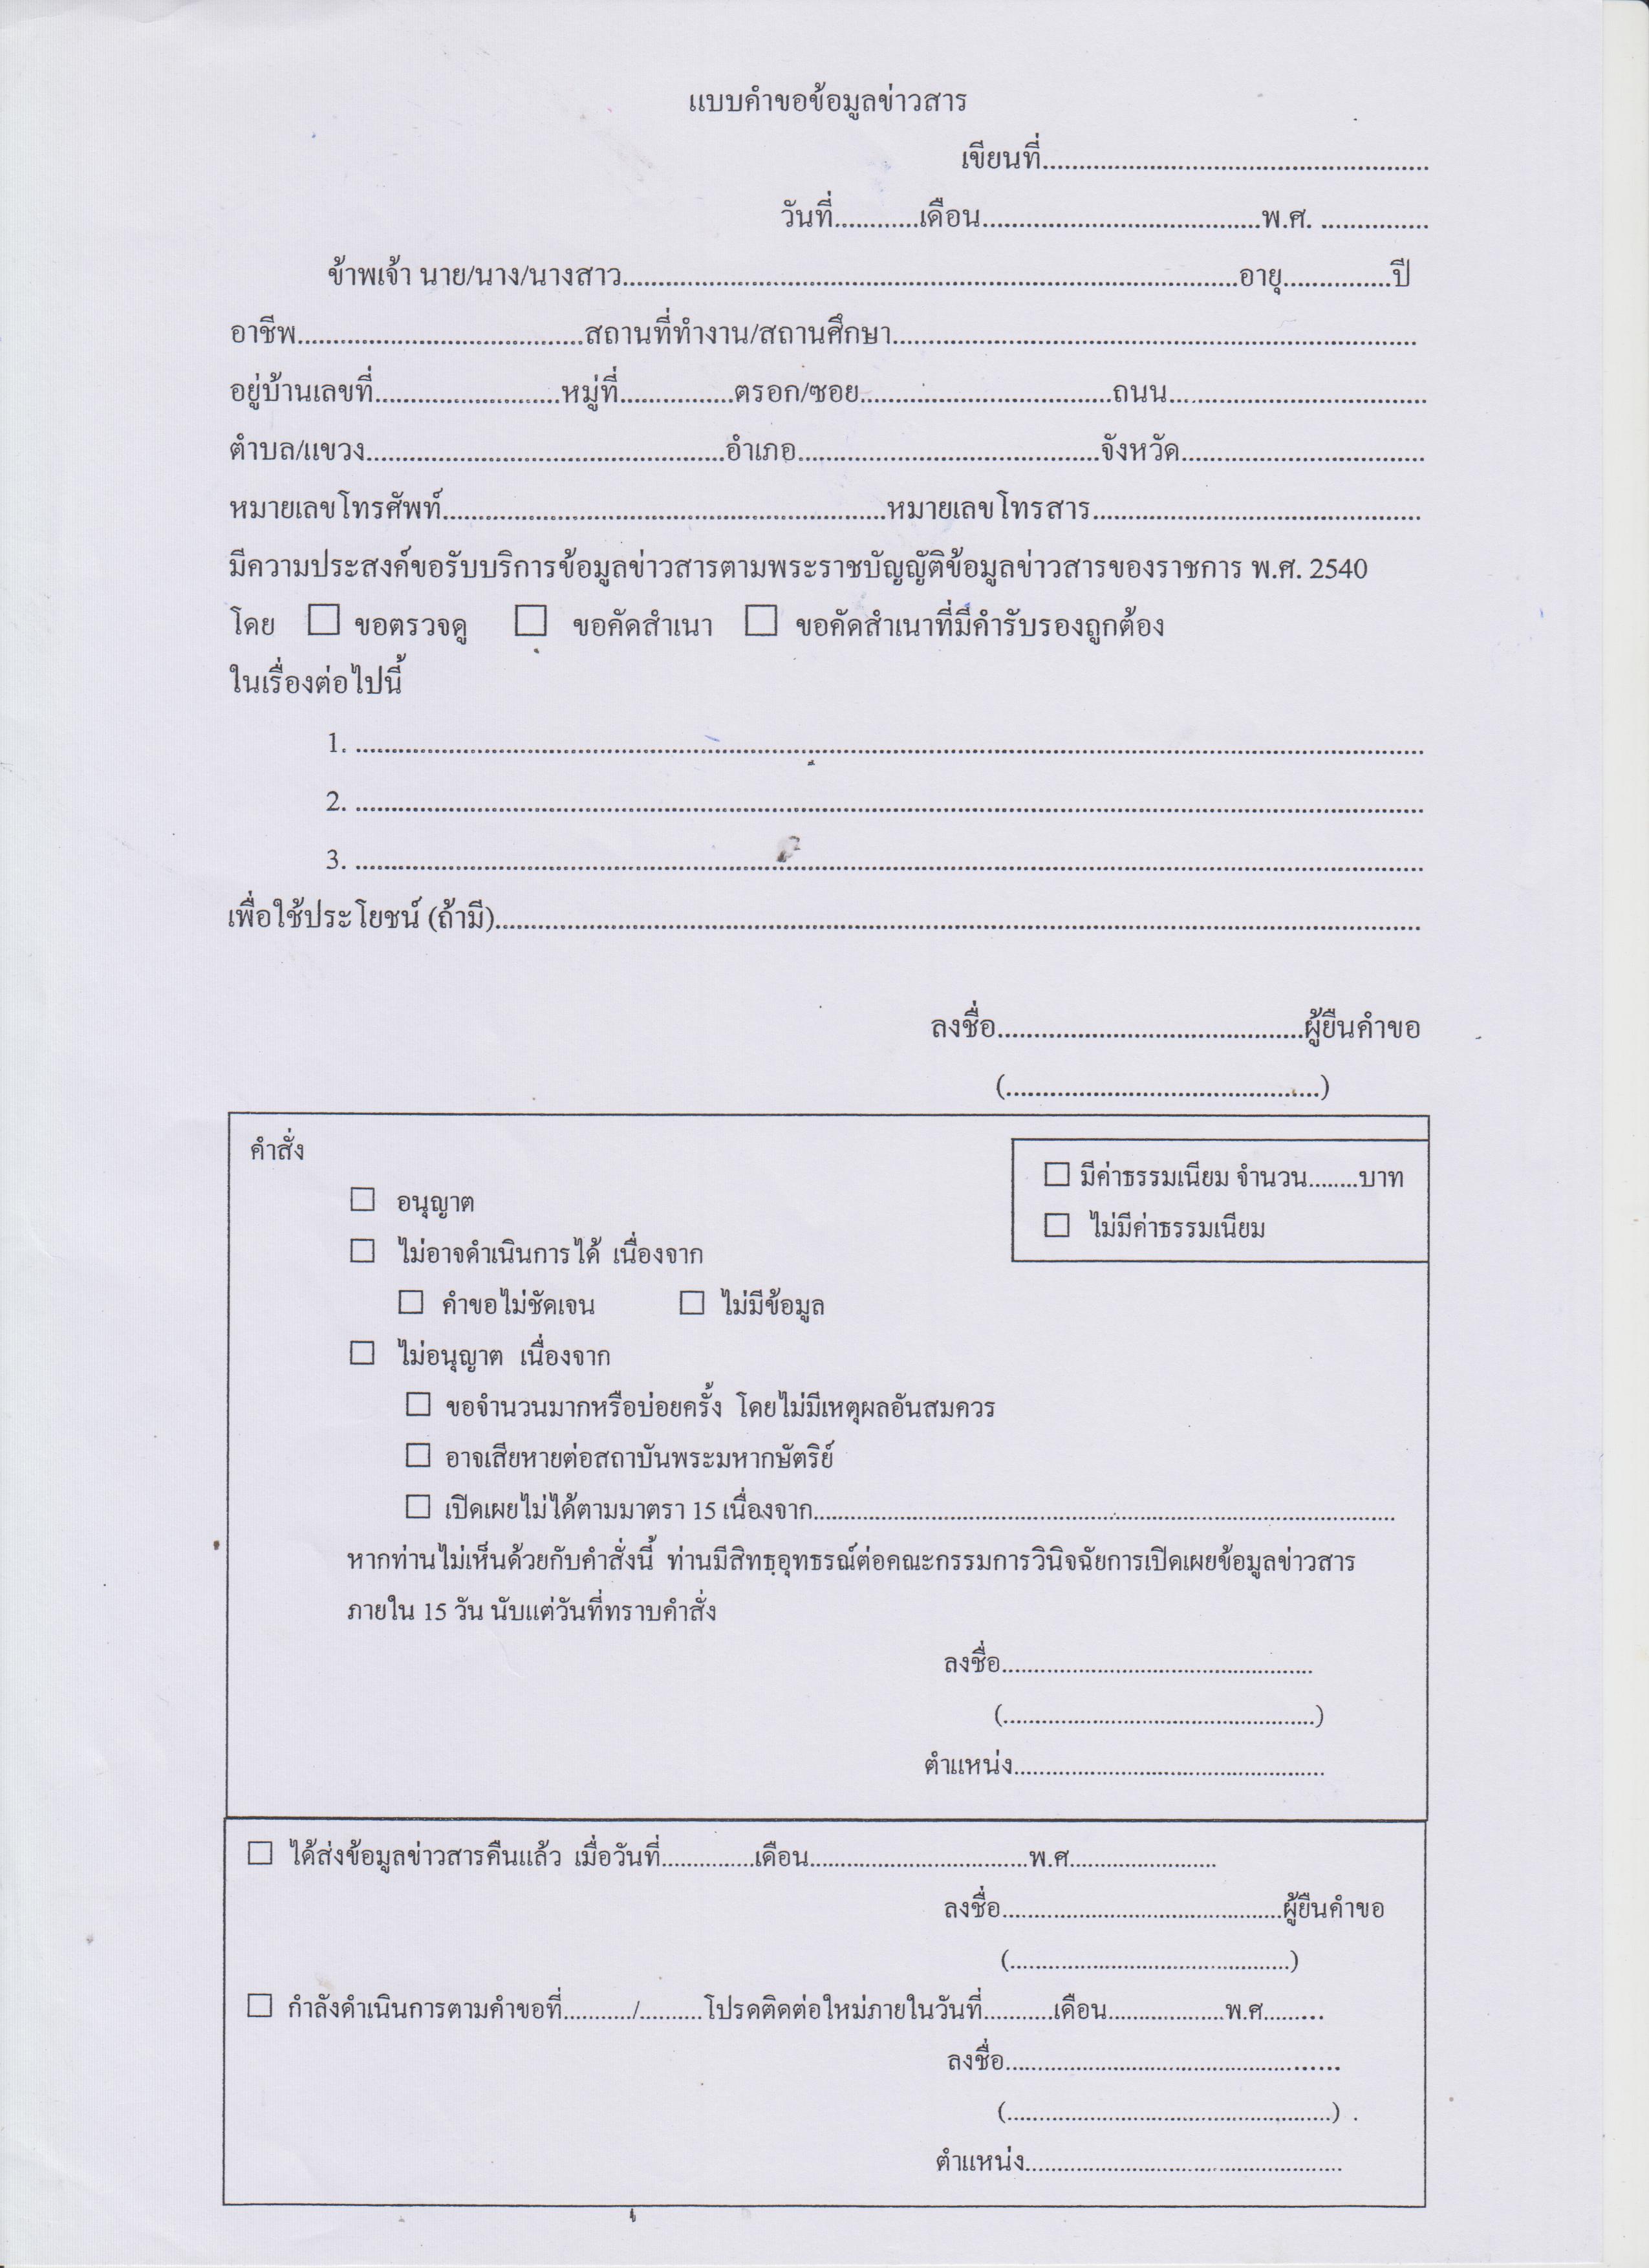 แบบคำขอข้อมูลข่าวสาร
เขียนที่....................................................
วันที่............เดือน......................................พ.ศ. ...............
ข้าพเจ้า นาย/นาง/นางสาว....................................................................................อายุ...............ปี
อาชีพ.......................................สถานที่ทำงาน/สถานศึกษา........................................................................
อยู่บ้านเลขที่.........................หมู่ที่................ตรอก/ซอย..................................ถนน...................................
ตำบล/แขวง.................................................อำเภอ.........................................จังหวัด.................................
หมายเลขโทรศัพท์............................................................หมายเลขโทรสาร.............................................
มีความประสงค์ขอรับบริการข้อมูลข่าวสารตามพระราชบัญญัติข้อมูลข่าวสารของราชการ พ.ศ. 2540
โดย ☐ ขอตรวจดู ☐ ขอคัดสำเนา ☐ ขอคัดสำเนาที่มีคำรับรองถูกต้อง
ในเรื่องต่อไปนี้
1. ..................................................................................................................................
2. ..................................................................................................................................
3. ..................................................................................................................................
เพื่อใช้ประโยชน์ (ถ้ามี)..............................................................................................................................
ลงชื่อ.........................................ผู้ยื่นคำขอ
(...........................................)
คำสั่ง
☐ มีค่าธรรมเนียม จำนวน........บาท
☐ อนุญาต
☐ ไม่มีค่าธรรมเนียม
☐ ไม่อาจดำเนินการได้ เนื่องจาก
☐ คำขอไม่ชัดเจน ☐ ไม่มีข้อมูล
☐ ไม่อนุญาต เนื่องจาก
☐ ขอจำนวนมากหรือบ่อยครั้ง โดยไม่มีเหตุผลอันสมควร
☐ อาจเสียหายต่อสถาบันพระมหากษัตริย์
☐ เปิดเผยไม่ได้ตามมาตรา 15 เนื่องจาก..........................................................................................
หากท่านไม่เห็นด้วยกับคำสั่งนี้ ท่านมีสิทธฺอุทธรณ์ต่อคณะกรรมการวินิจฉัยการเปิดเผยข้อมูลข่าวสาร
ภายใน 15 วัน นับแต่วันที่ทราบคำสั่ง
ลงชื่อ.................................................
(.................................................)
ตำแหน่ง................................................
☐ ได้ส่งข้อมูลข่าวสารคืนแล้ว เมื่อวันที่...............เดือน..................................พ.ศ.......................
ลงชื่อ............................................ผู้ยืนคำขอ
(............................................)
☐ กำลังดำเนินการตามคำขอที่.........../..........โปรดติดต่อใหม่ภายในวันที่...........เดือน..................พ.ศ.........
ลงชื่อ.....................................................
(...................................................) .
ตำแหน่ง.................................................